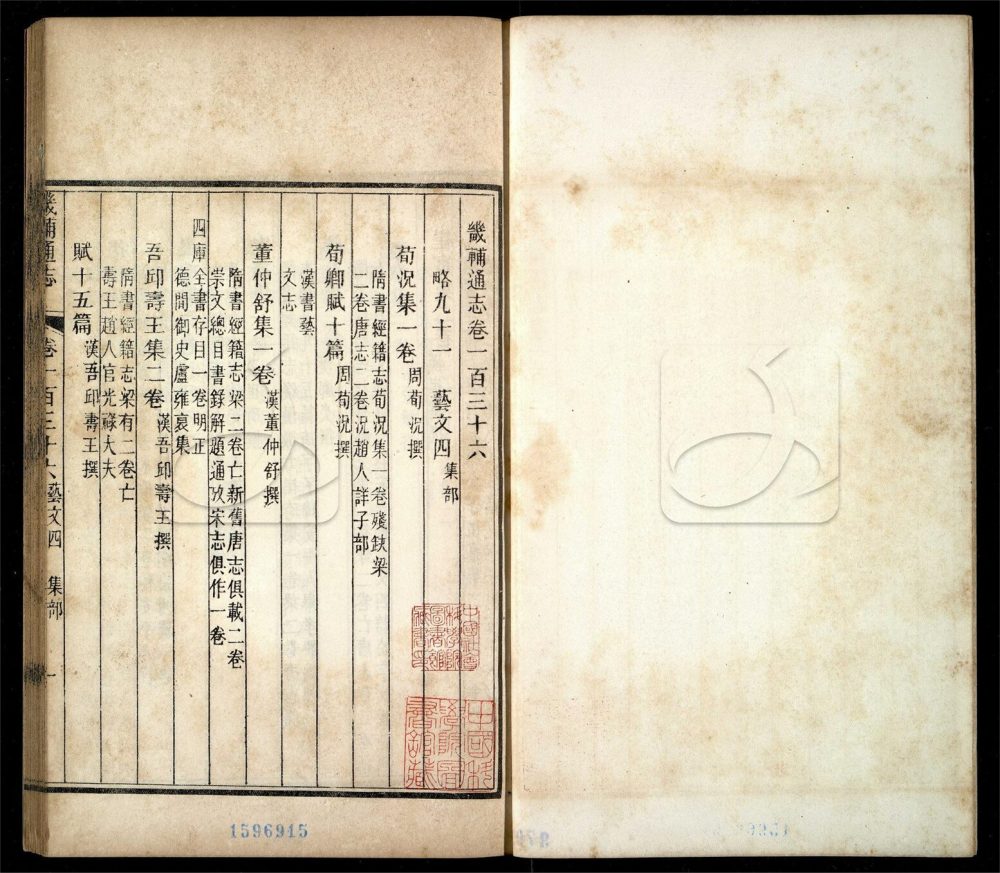 畿輔通志卷一百三十六
略九十一 藝文四 集部
荀況集一卷 周荀況撰
隋書經籍志荀況集一卷殘缺梁
二卷唐志二卷況趙人詳子部
荀卿賦十篇 周荀況撰
漢書藝
文志
董仲舒集一卷 漢董仲舒撰
隋書經籍志梁二卷亡新舊唐志俱載二卷
崇文總目書錄解題通攷宋志俱作一卷
四庫全書存目一卷明正
德間御史盧雍裒集
吾邱壽王集二卷 漢吾邱壽王撰
隋書經籍志梁有二卷亡
壽王趙人官光祿大夫
賦十五篇 漢吾邱壽王撰
畿輔通志 卷一百三十六 藝文四 集部 一
中國科學院圖書館藏
1596915